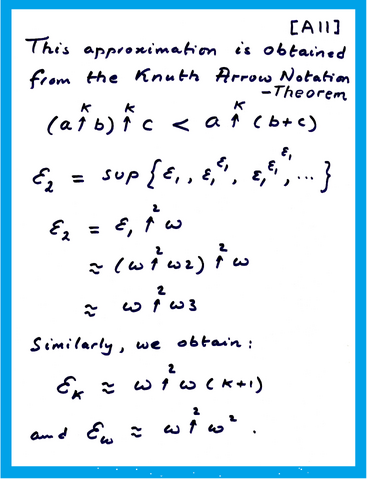 [A11]
This approximation is obtained
from the Knuth Arrow Notation
-Theorem
(a ↑ᴷ b) ↑ᴷ c < a ↑ᴷ (b+c)
ε₂ = sup { ε₁, ε₁^ε₁, ε₁^ε₁^ε₁, ... }
ε₂ = ε₁ ↑² ω
≈ (ω ↑² ω2) ↑² ω
≈ ω ↑² ω3
Similarly, we obtain:
εₖ ≈ ω ↑² ω (k+1)
and ε_ω ≈ ω ↑² ω².